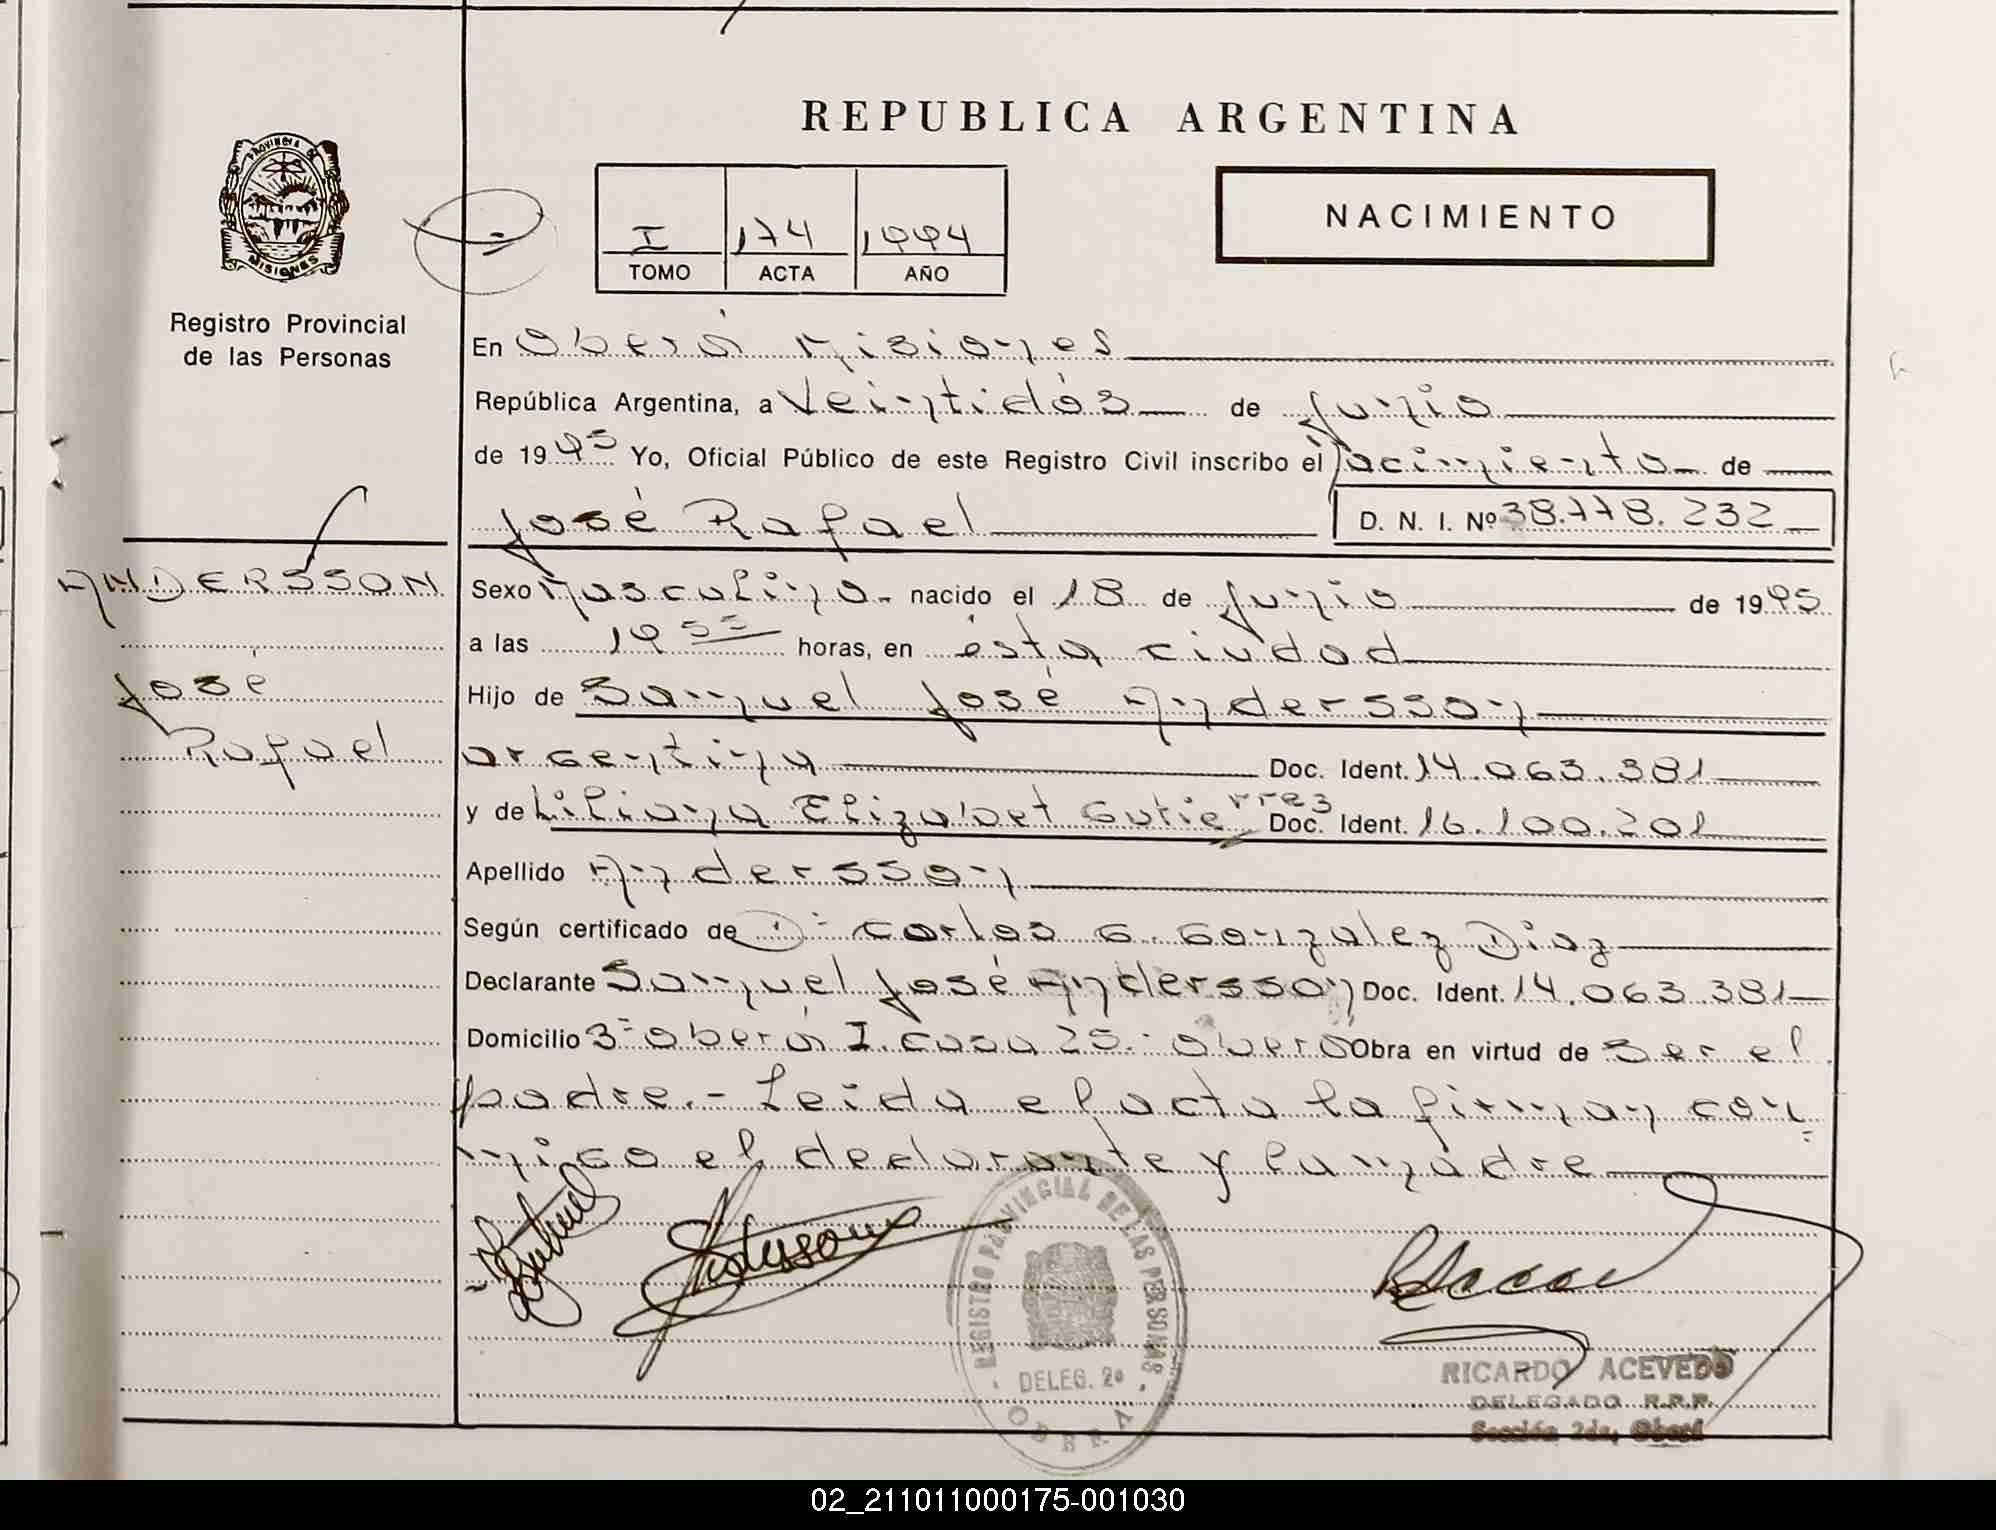 REPUBLICA ARGENTINA
PROVINCIA DE MISIONES
Registro Provincial
de las Personas
I 174 1994
TOMO ACTA AÑO
NACIMIENTO
En Oberá Misiones
República Argentina, a Veintidós de Junio
de 1995 Yo, Oficial Público de este Registro Civil inscribo el nacimiento de
José Rafael D. N. I. Nº 38.778.232
ANDERSSON
José
Rafael
Sexo Masculino nacido el 18 de Junio de 1995
a las 19 55 horas, en ésta ciudad
Hijo de Samuel José Andersson
argentina Doc. Ident. 14.063.381
y de Liliana Elizabet Gutierrez Doc. Ident. 16.100.201
Apellido Andersson
Según certificado de Dr Carlos G. Gonzalez Diaz
Declarante Samuel José Andersson Doc. Ident. 14.063.381
Domicilio 3- Oberá I. casa 25.- Oberá Obra en virtud de ser el
padre.- Leida el acta la firman con-
migo el declarante y la madre
REGISTRO PROVINCIAL DE LAS PERSONAS
DELEG. 2º
OBERA
RICARDO ACEVEDO
DELEGADO R.P.P.
Sección 2da. Oberá
02_211011000175-001030